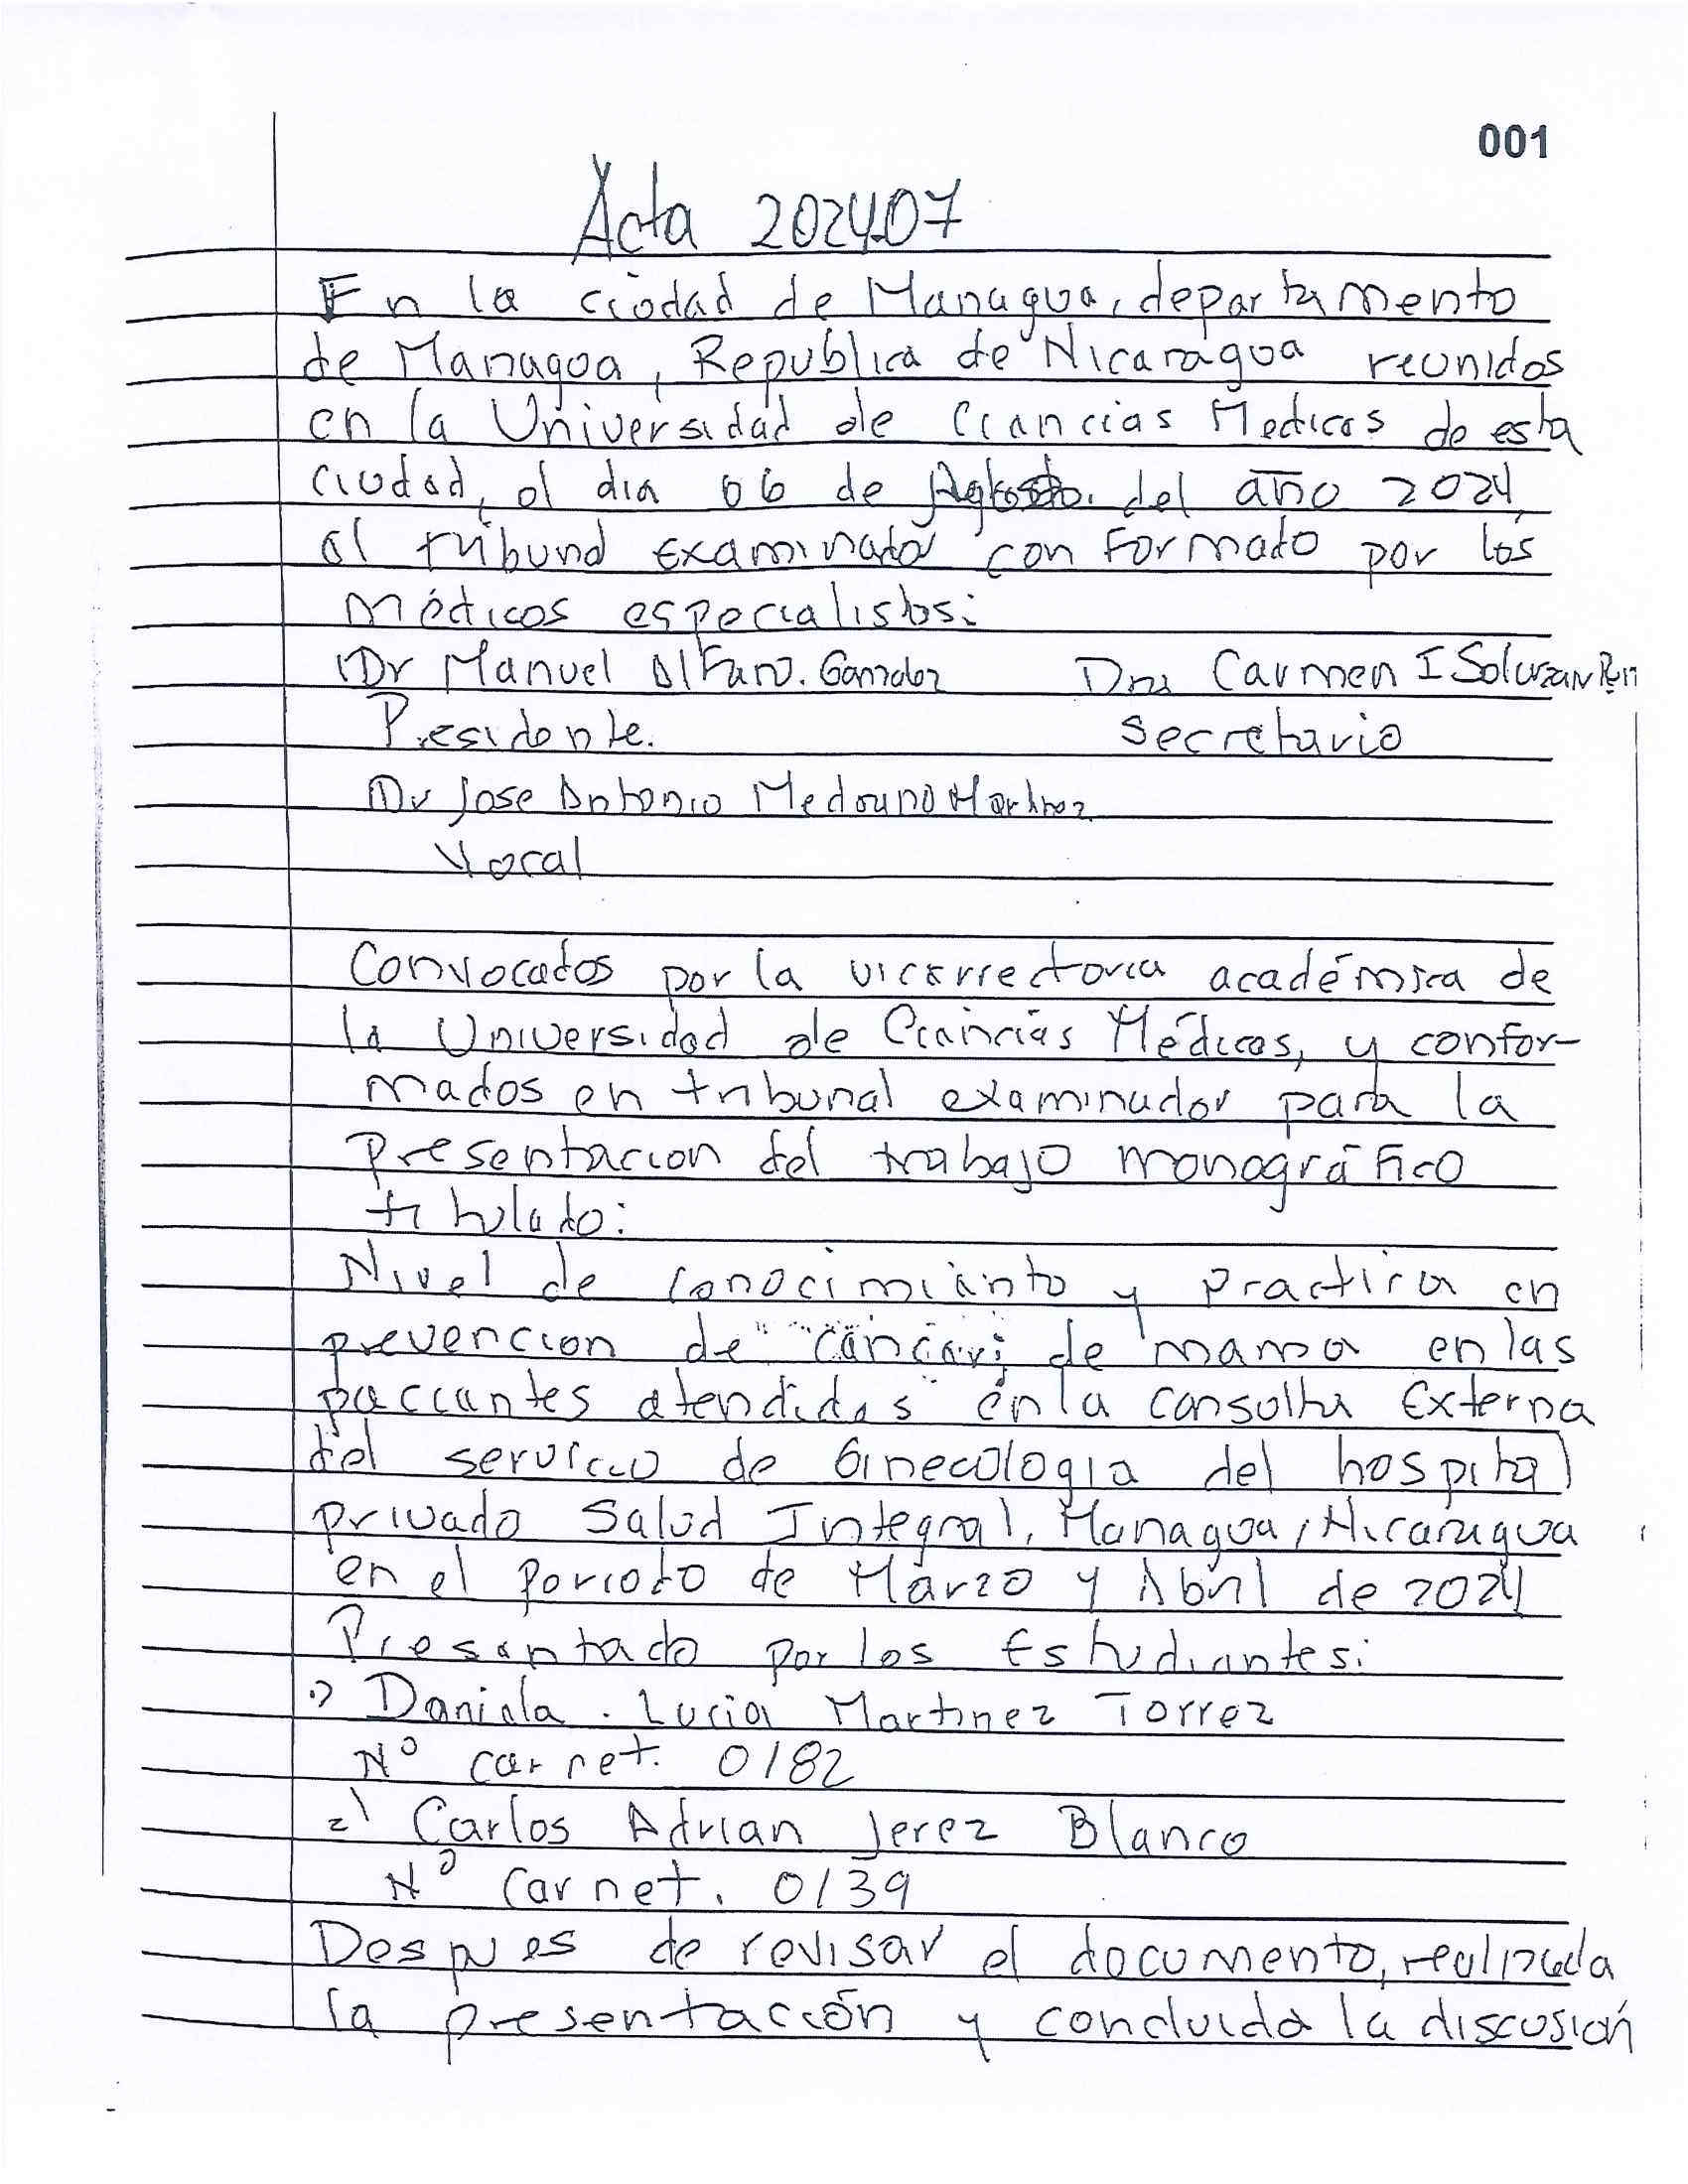 001
Acta 202407
En la ciudad de Managua, departamento
de Managua, Republica de Nicaragua reunidos
en la Universidad de Ciencias Medicas de esta
ciudad, el dia 06 de Agosto. del año 2024,
el tribunal examinador conformado por los
médicos especialistas:
Dr Manuel Alfaro. Gonzalez Dra Carmen I Solorzano
Presidente. Secretario
Dr Jose Antonio Medrano Martinez
Vocal
Convocados por la vicerrectoria académica de
la Universidad de Ciencias Médicas, y confor-
mados en tribunal examinador para la
Presentacion del trabajo monográfico
titulado:
Nivel de conocimiento y practica en
prevencion de cancer de mama en las
pacientes atendidas en la consulta Externa
del servicio de Ginecologia del hospital
privado Salud Integral, Managua, Nicaragua
en el periodo de Marzo y Abril de 2024
Presentado por los Estudiantes:
Daniela. Lucia Martinez Torrez
N° carnet. 0182
2) Carlos Adrian Jerez Blanco
N° carnet. 0139
Despues de revisar el documento, realizada
la presentación y concluida la discusión